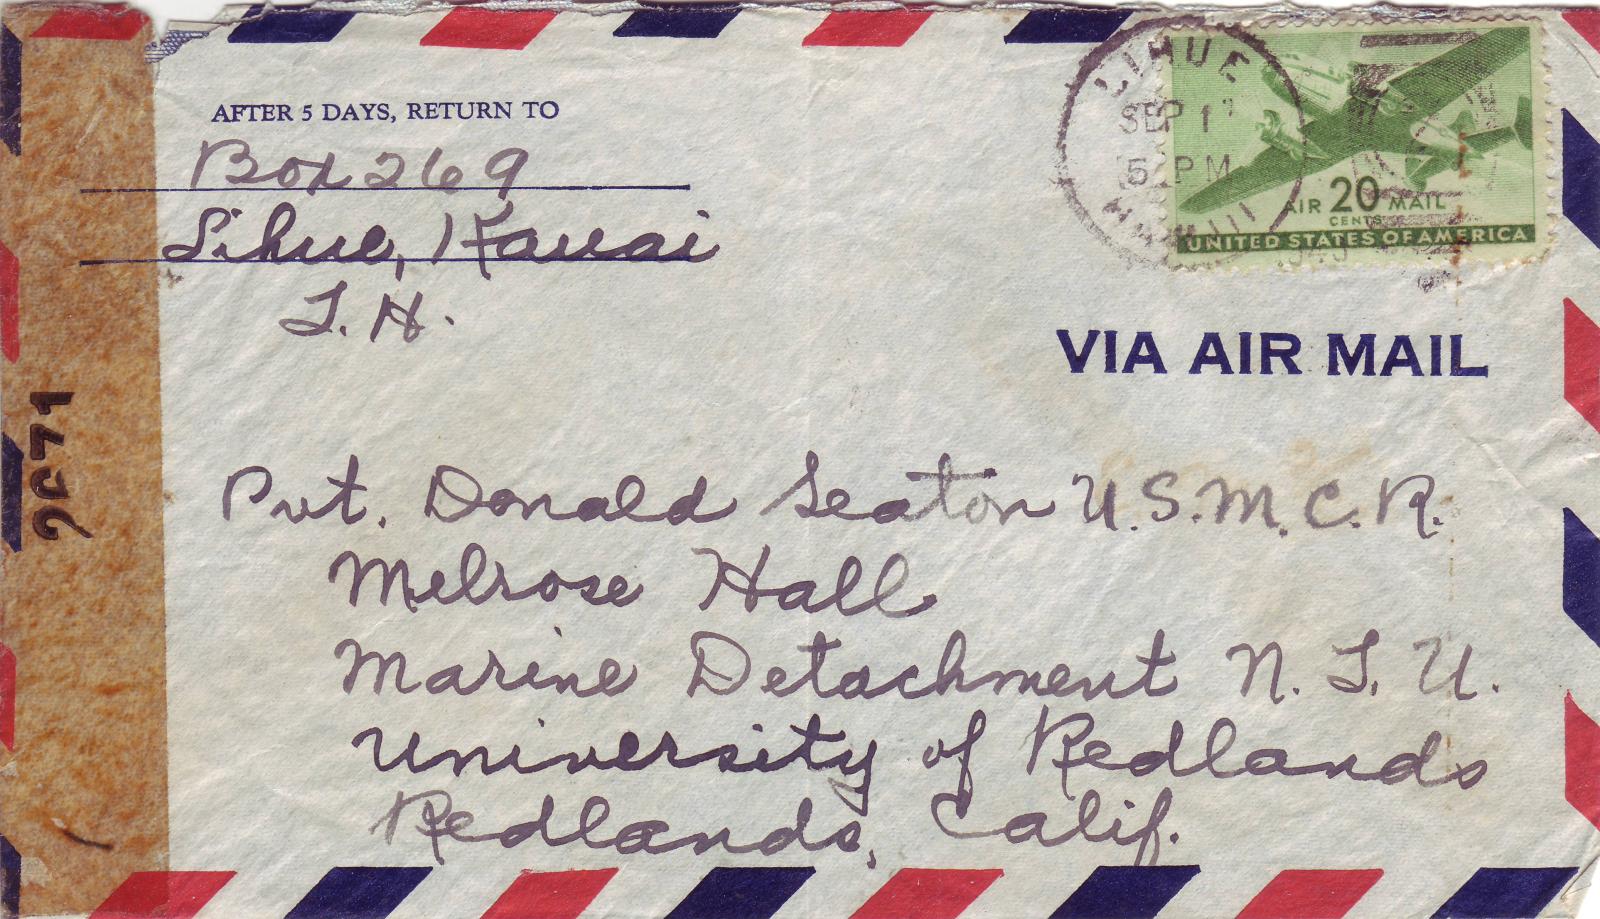 AFTER 5 DAYS, RETURN TO
Box 269
Lihue, Kauai
T. H.
LIHUE
SEP 1
5 PM
HAWAII
AIR 20 MAIL
CENTS
UNITED STATES OF AMERICA
VIA AIR MAIL
Pvt. Donald Seaton U.S.M.C.R.
Melrose Hall
Marine Detachment N.T.U.
University of Redlands
Redlands, Calif.